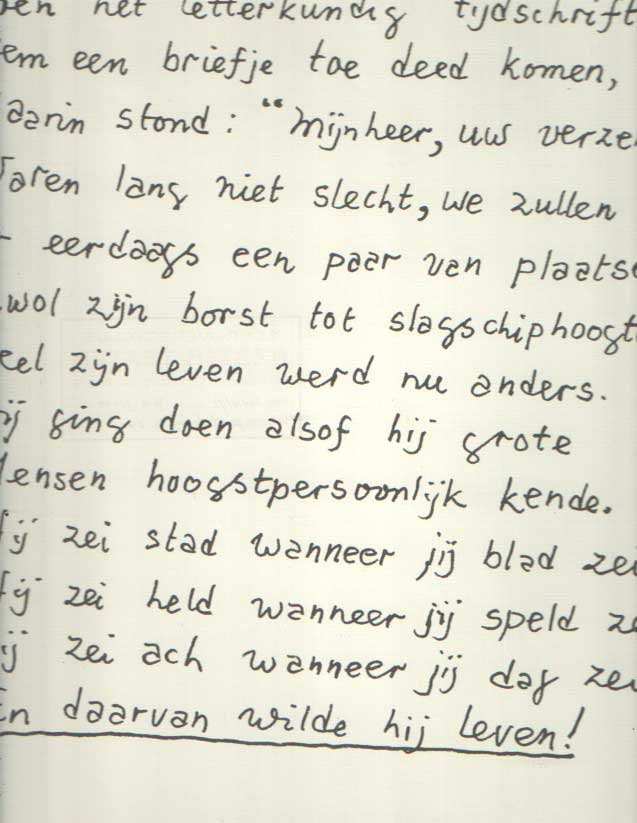 en het letterkundig tijdschrift
em een briefje toe deed komen,
aarin stond: "Mijnheer, uw verze
aren lang niet slecht, we zullen
- eerdaags een paar van plaatse
wol zijn borst tot slagschiphoogt
eel zijn leven werd nu anders.
ij ging doen alsof hij grote
ensen hoogstpersoonlijk kende.
ij zei stad wanneer jij blad zei
ij zei held wanneer jij speld ze
ij zei ach wanneer jij dag zei
En daarvan wilde hij leven!